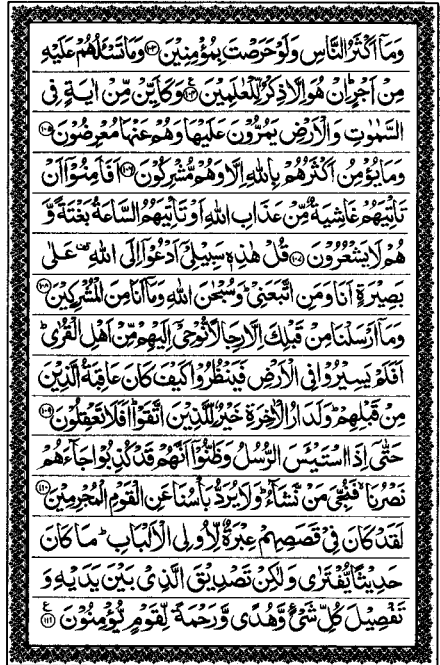 وَمَاۤ اَكْثَرُ النَّاسِ وَلَوْ حَرَصْتَ بِمُؤْمِنِیْنَ ﴿۱۰۳﴾ وَمَا تَسْـَٔلُهُمْ عَلَیْهِ
مِنْ اَجْرٍ ؕ اِنْ هُوَ اِلَّا ذِكْرٌ لِّلْعٰلَمِیْنَ ﴿۱۰۴﴾ وَكَاَیِّنْ مِّنْ اٰیَةٍ فِی
السَّمٰوٰتِ وَالْاَرْضِ یَمُرُّوْنَ عَلَیْهَا وَهُمْ عَنْهَا مُعْرِضُوْنَ ﴿۱۰۵﴾
وَمَا یُؤْمِنُ اَكْثَرُهُمْ بِاللّٰهِ اِلَّا وَهُمْ مُّشْرِكُوْنَ ﴿۱۰۶﴾ اَفَاَمِنُوْۤا اَنْ
تَاْتِیَهُمْ غَاشِیَةٌ مِّنْ عَذَابِ اللّٰهِ اَوْ تَاْتِیَهُمُ السَّاعَةُ بَغْتَةً وَّ
هُمْ لَا یَشْعُرُوْنَ ﴿۱۰۷﴾ قُلْ هٰذِهٖ سَبِیْلِیْۤ اَدْعُوْۤا اِلَی اللّٰهِ ؔ عَلٰی
بَصِیْرَةٍ اَنَا وَمَنِ اتَّبَعَنِیْ ؕ وَسُبْحٰنَ اللّٰهِ وَمَاۤ اَنَا مِنَ الْمُشْرِكِیْنَ ﴿۱۰۸﴾
وَمَاۤ اَرْسَلْنَا مِنْ قَبْلِكَ اِلَّا رِجَالًا نُّوْحِیْۤ اِلَیْهِمْ مِّنْ اَهْلِ الْقُرٰی ؕ
اَفَلَمْ یَسِیْرُوْا فِی الْاَرْضِ فَیَنْظُرُوْا كَیْفَ كَانَ عَاقِبَةُ الَّذِیْنَ
مِنْ قَبْلِهِمْ ؕ وَلَدَارُ الْاٰخِرَةِ خَیْرٌ لِّلَّذِیْنَ اتَّقَوْا ؕ اَفَلَا تَعْقِلُوْنَ ﴿۱۰۹﴾
حَتّٰۤی اِذَا اسْتَیْـَٔسَ الرُّسُلُ وَظَنُّوْۤا اَنَّهُمْ قَدْ كُذِبُوْا جَآءَهُمْ
نَصْرُنَا ۙ فَنُجِّیَ مَنْ نَّشَآءُ ؕ وَلَا یُرَدُّ بَاْسُنَا عَنِ الْقَوْمِ الْمُجْرِمِیْنَ ﴿۱۱۰﴾
لَقَدْ كَانَ فِیْ قَصَصِهِمْ عِبْرَةٌ لِّاُولِی الْاَلْبَابِ ؕ مَا كَانَ
حَدِیْثًا یُّفْتَرٰی وَلٰكِنْ تَصْدِیْقَ الَّذِیْ بَیْنَ یَدَیْهِ وَ
تَفْصِیْلَ كُلِّ شَیْءٍ وَّهُدًی وَّرَحْمَةً لِّقَوْمٍ یُّؤْمِنُوْنَ ﴿۱۱۱﴾ ع